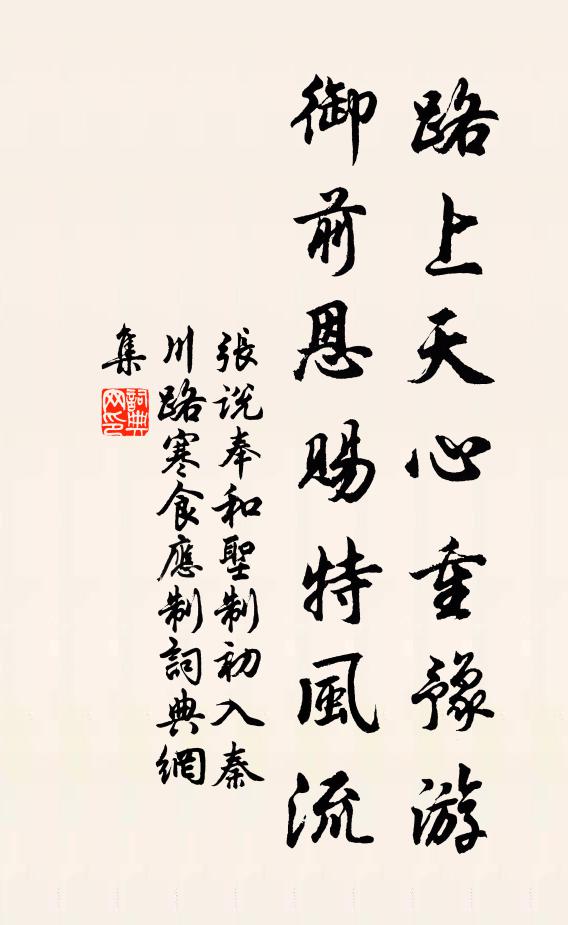 路上天心重豫游
御前恩賜特風流
張說奉和聖制初入秦
川路寒食應制詞典網
集
詞典
网印